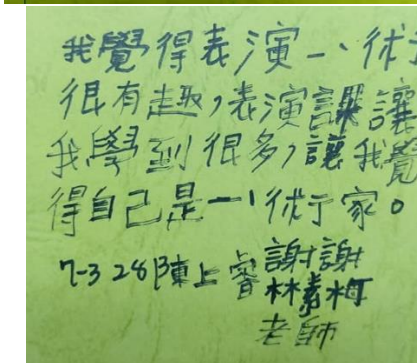 我覺得表演一、術
很有趣，表演課讓
我學到很多，讓我覺
得自己是一、術家。
7-3 28陳上睿 謝謝
林素梅
老師